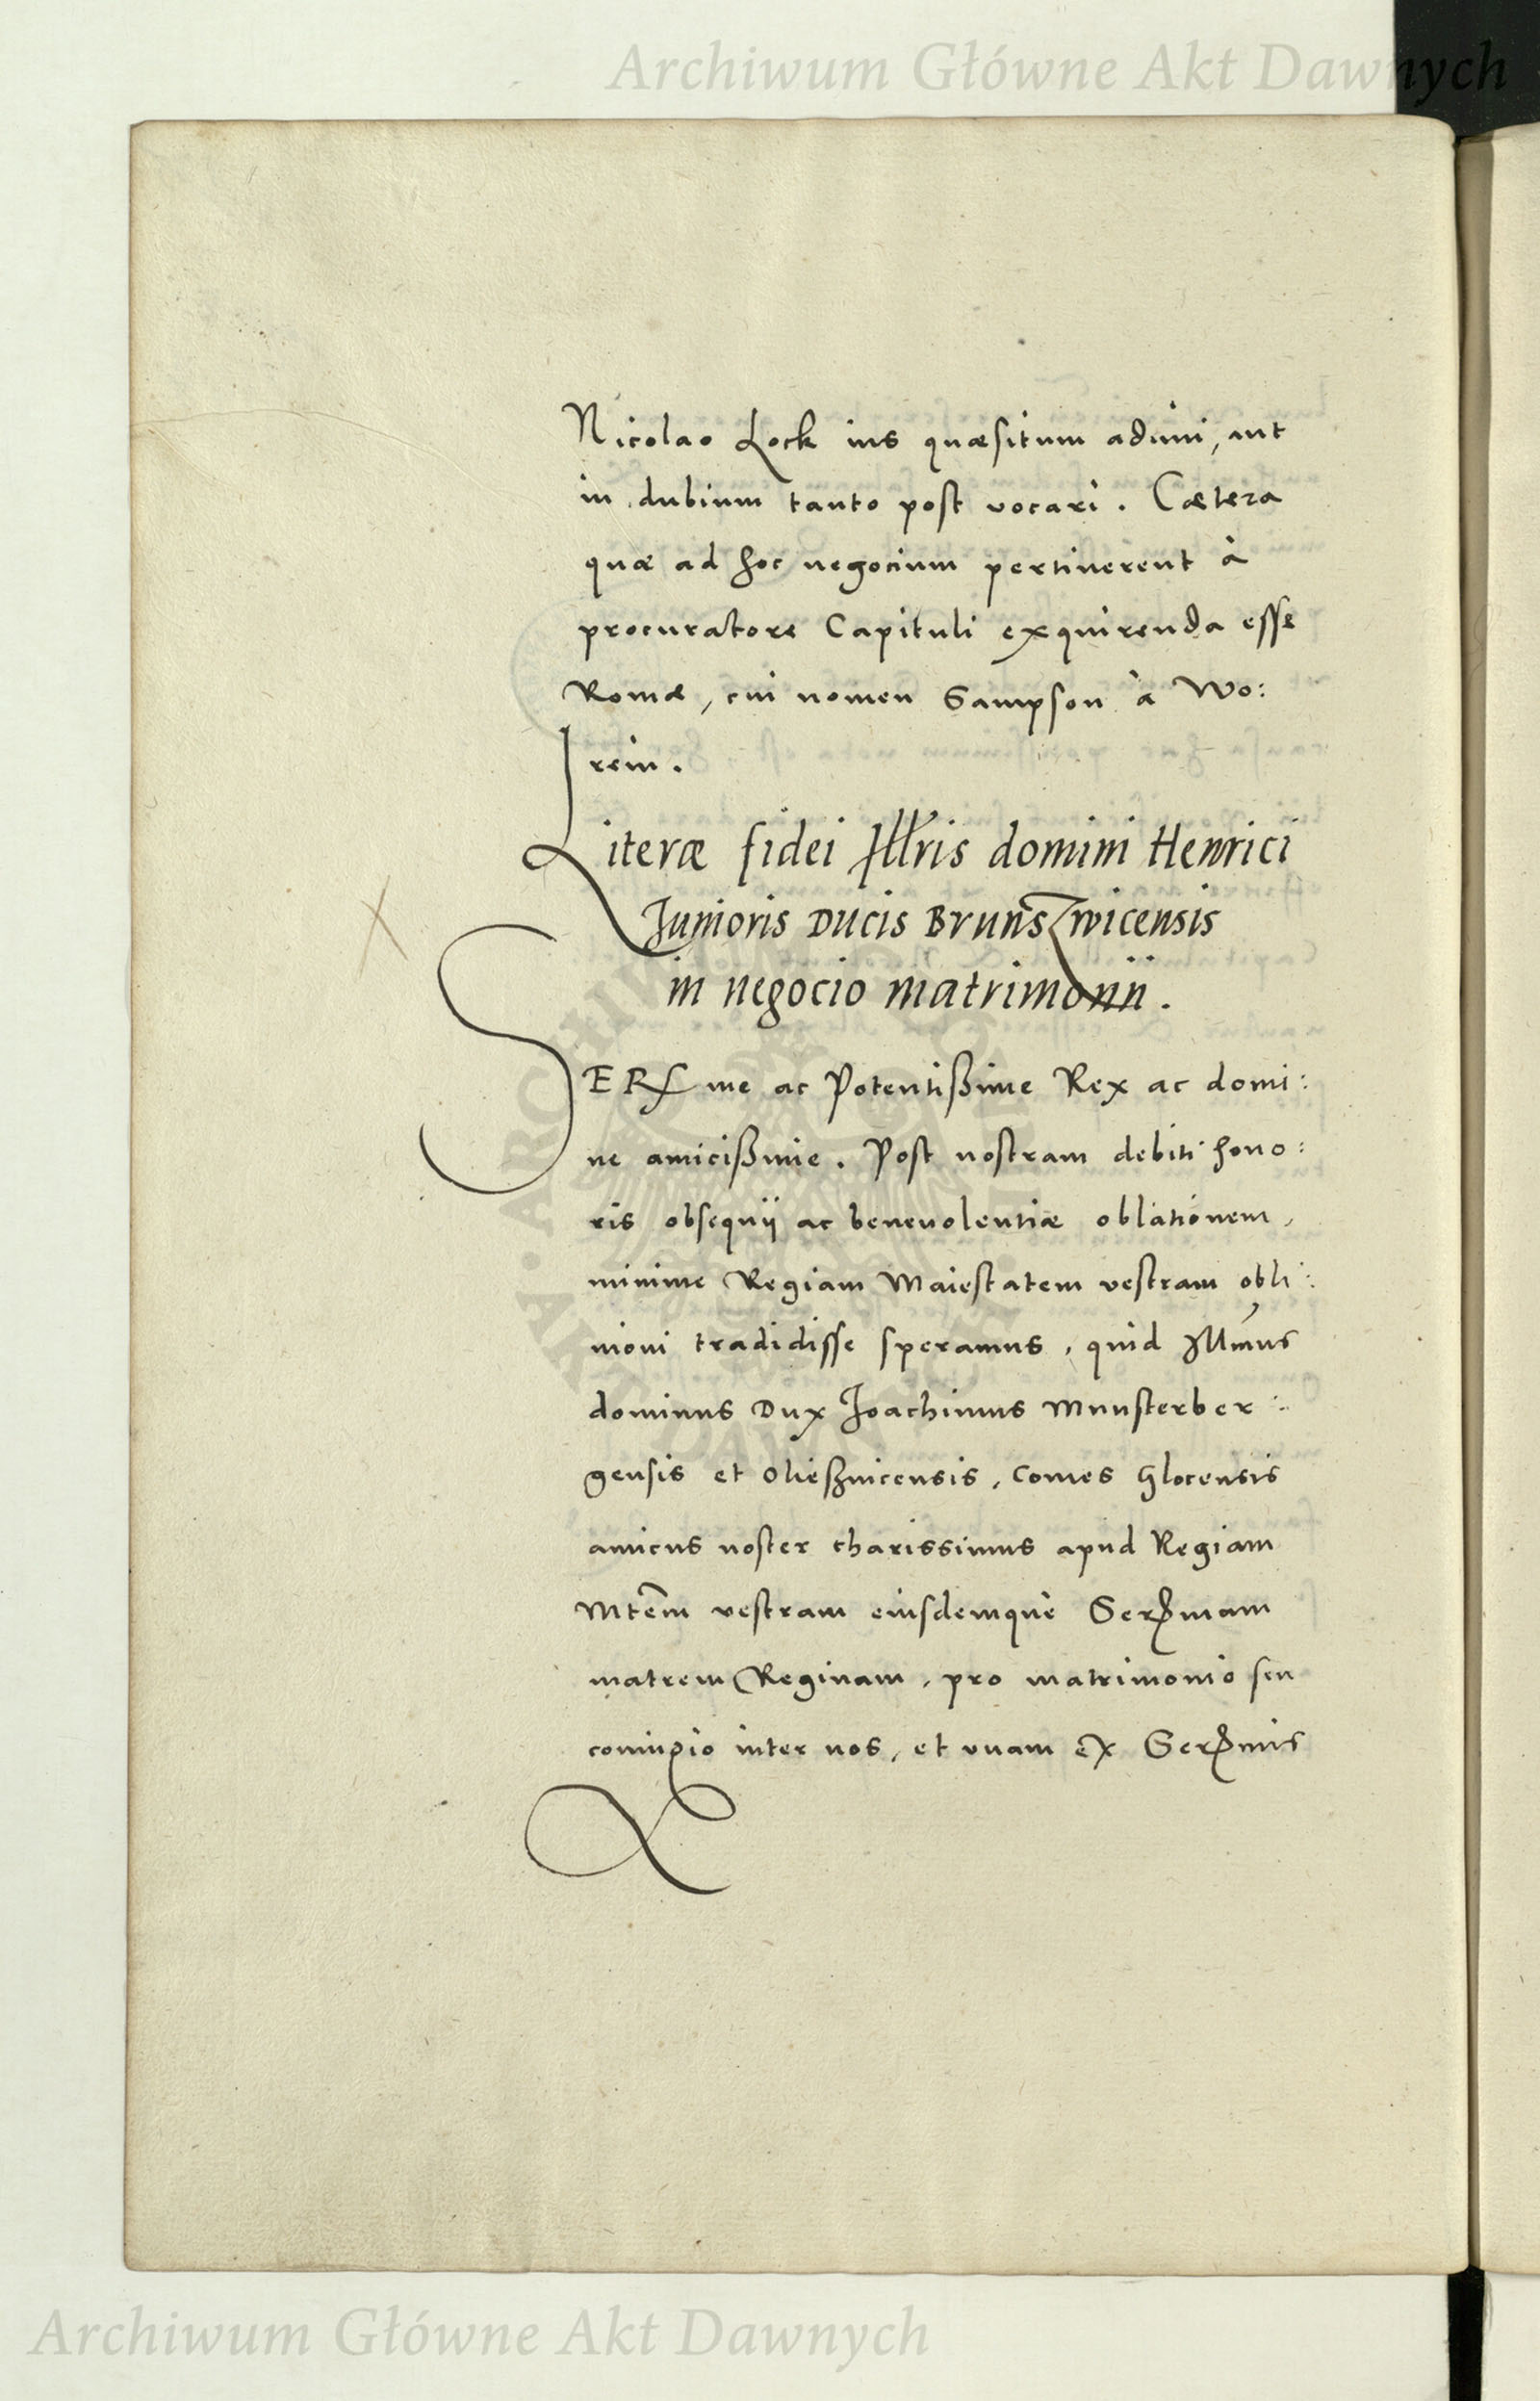 Archiwum Główne Akt Dawnych
Nicolao Lock ius quæsitum adimi, aut
in dubium tanto post vocari. Cætera
quæ ad hoc negocium pertinerent à
procuratore Capituli exquirenda esse
Romæ, cui nomen Sampson à Wo:
rein.
Literæ fidei Illris domini Henrici
Junioris Ducis Brunszwicensis
in negocio matrimonii.
SERme ac Potentißime Rex ac domi:
ne amicißime. Post nostram debiti hono:
ris obsequij ac beneuolentiæ oblationem,
minime Regiam Maiestatem vestram obli:
uioni tradidisse speramus, quid Illmus
dominus Dux Joachimus Munsterber:
gensis et Oließnicensis, Comes Glocensis
amicus noster charissimus apud Regiam
Mtem vestram eiusdemque Sermam
matrem Reginam, pro matrimonio seu
coniugio inter nos, et vnam ex Sermis
Archiwum Główne Akt Dawnych